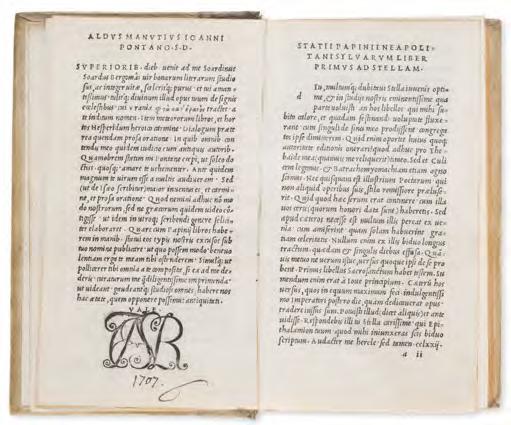 ALDVS MANVTIVS IOANNI
PONTANO·S·D·
SVPERIORIB· dieb· uenit ad me Suardinus
Suardus Bergomas uir bonarum literarum studio
sus, et integer uitæ, scelerisq; purus· et ut amen-
tissimus tuiq; diuinum illud opus tuum de signis
cœlestibus· tractat· a
te in dium nomen· Item meteororum libros, et hor
tos Hesperidum heroico carmine· Dialogum præte
rea quendam prosa oratione· In quib· omnib· con
tendis meo quidem iudicio cum antiquis autorib·
Quamobrem statim mi Pontane cœpi, ut soleo do
ctis· quosq; amare te uehementer· Ante quidem
magnum te uirum esse a multis audieram· Sed
magno et in uenies, et carmi-
ne, et prosa oratione· Quod nemini adhuc nō mo
do nostrorum, sed ne græcorum quidem uideo cō
tigisse· ut idem in utroq; scribendi genere felici-
ter elaboraret· Quare cum Papinij libros habe-
rem in manib· statui eos typis nostris excusos sub
tuo nomine publicare· ut quo possem modo beneuo
lentiam erga te meam tibi ostenderem· Simulq; ut
pollicerer tibi omnia a te composita, si ea ad me de-
deris· curaturum me q̃diligentissime imprimenda·
ut uideant· gaudeantq; studiosi omnes, habere nos
hac ætate, quem opponere possimus antiquitati·
VALE·
1707·
STATII PAPINII NEAPOLI
TANI SYLVARVM LIBER
PRIMVS AD STELLAM·
d Iu, multumq; dubitaui Stella iuuenis opti-
me, et in studijs nostris eminentissime qua
parte uoluisti· an hos libellos· qui mihi su
bito calore, et quadam festinandi uoluptate fluxe-
rant· cum singuli de sinu meo prodissent· congrega-
tos ipse dimitterem· Quid enim oportet huius quoq;
autoritate editionis onerari· quod adhuc pro The
baide mea; quamuis me reliquerit; timeo· Sed et Culi
cem legimus· et Batrachomyomachiam etiam agno
scimus· Nec quisquam est illustrium Poetarum· qui
non aliquid operibus suis stilo remissiore præluse-
rit· Quid quod hæc serum erat continere· cum illa
uos certe; quorum honori data sunt; haberetis· Sed
apud cæteros necesse est multum illis pereat ex ue-
nia· cum amiserint quam solam habuerint gra-
tiam celeritatis· Nullum enim ex illis biduo longius
tractum· quædam et singulis diebus effusa· Quā-
uis metuo ne uerum istuc, uersus quoque ipsi de se pro
bent· Primus libellus Sacrosanctum habet testem· Su-
mendum enim erat a Ioue principium· Cæterū hos
uersus, quos in equum maximum feci· indulgentissi
mo imperatori postero die, quam dedicauerat opus·
tradere iussus sum· Potuisti illud; dicet aliquis; et ante
uidisse· Respondebis illi tu Stella carissime· qui Epi-
thalamion tuum· quod mihi iniunxeras scis biduo
scriptum· Audacter me hercle· sed tamen· cclxxij·
a ii